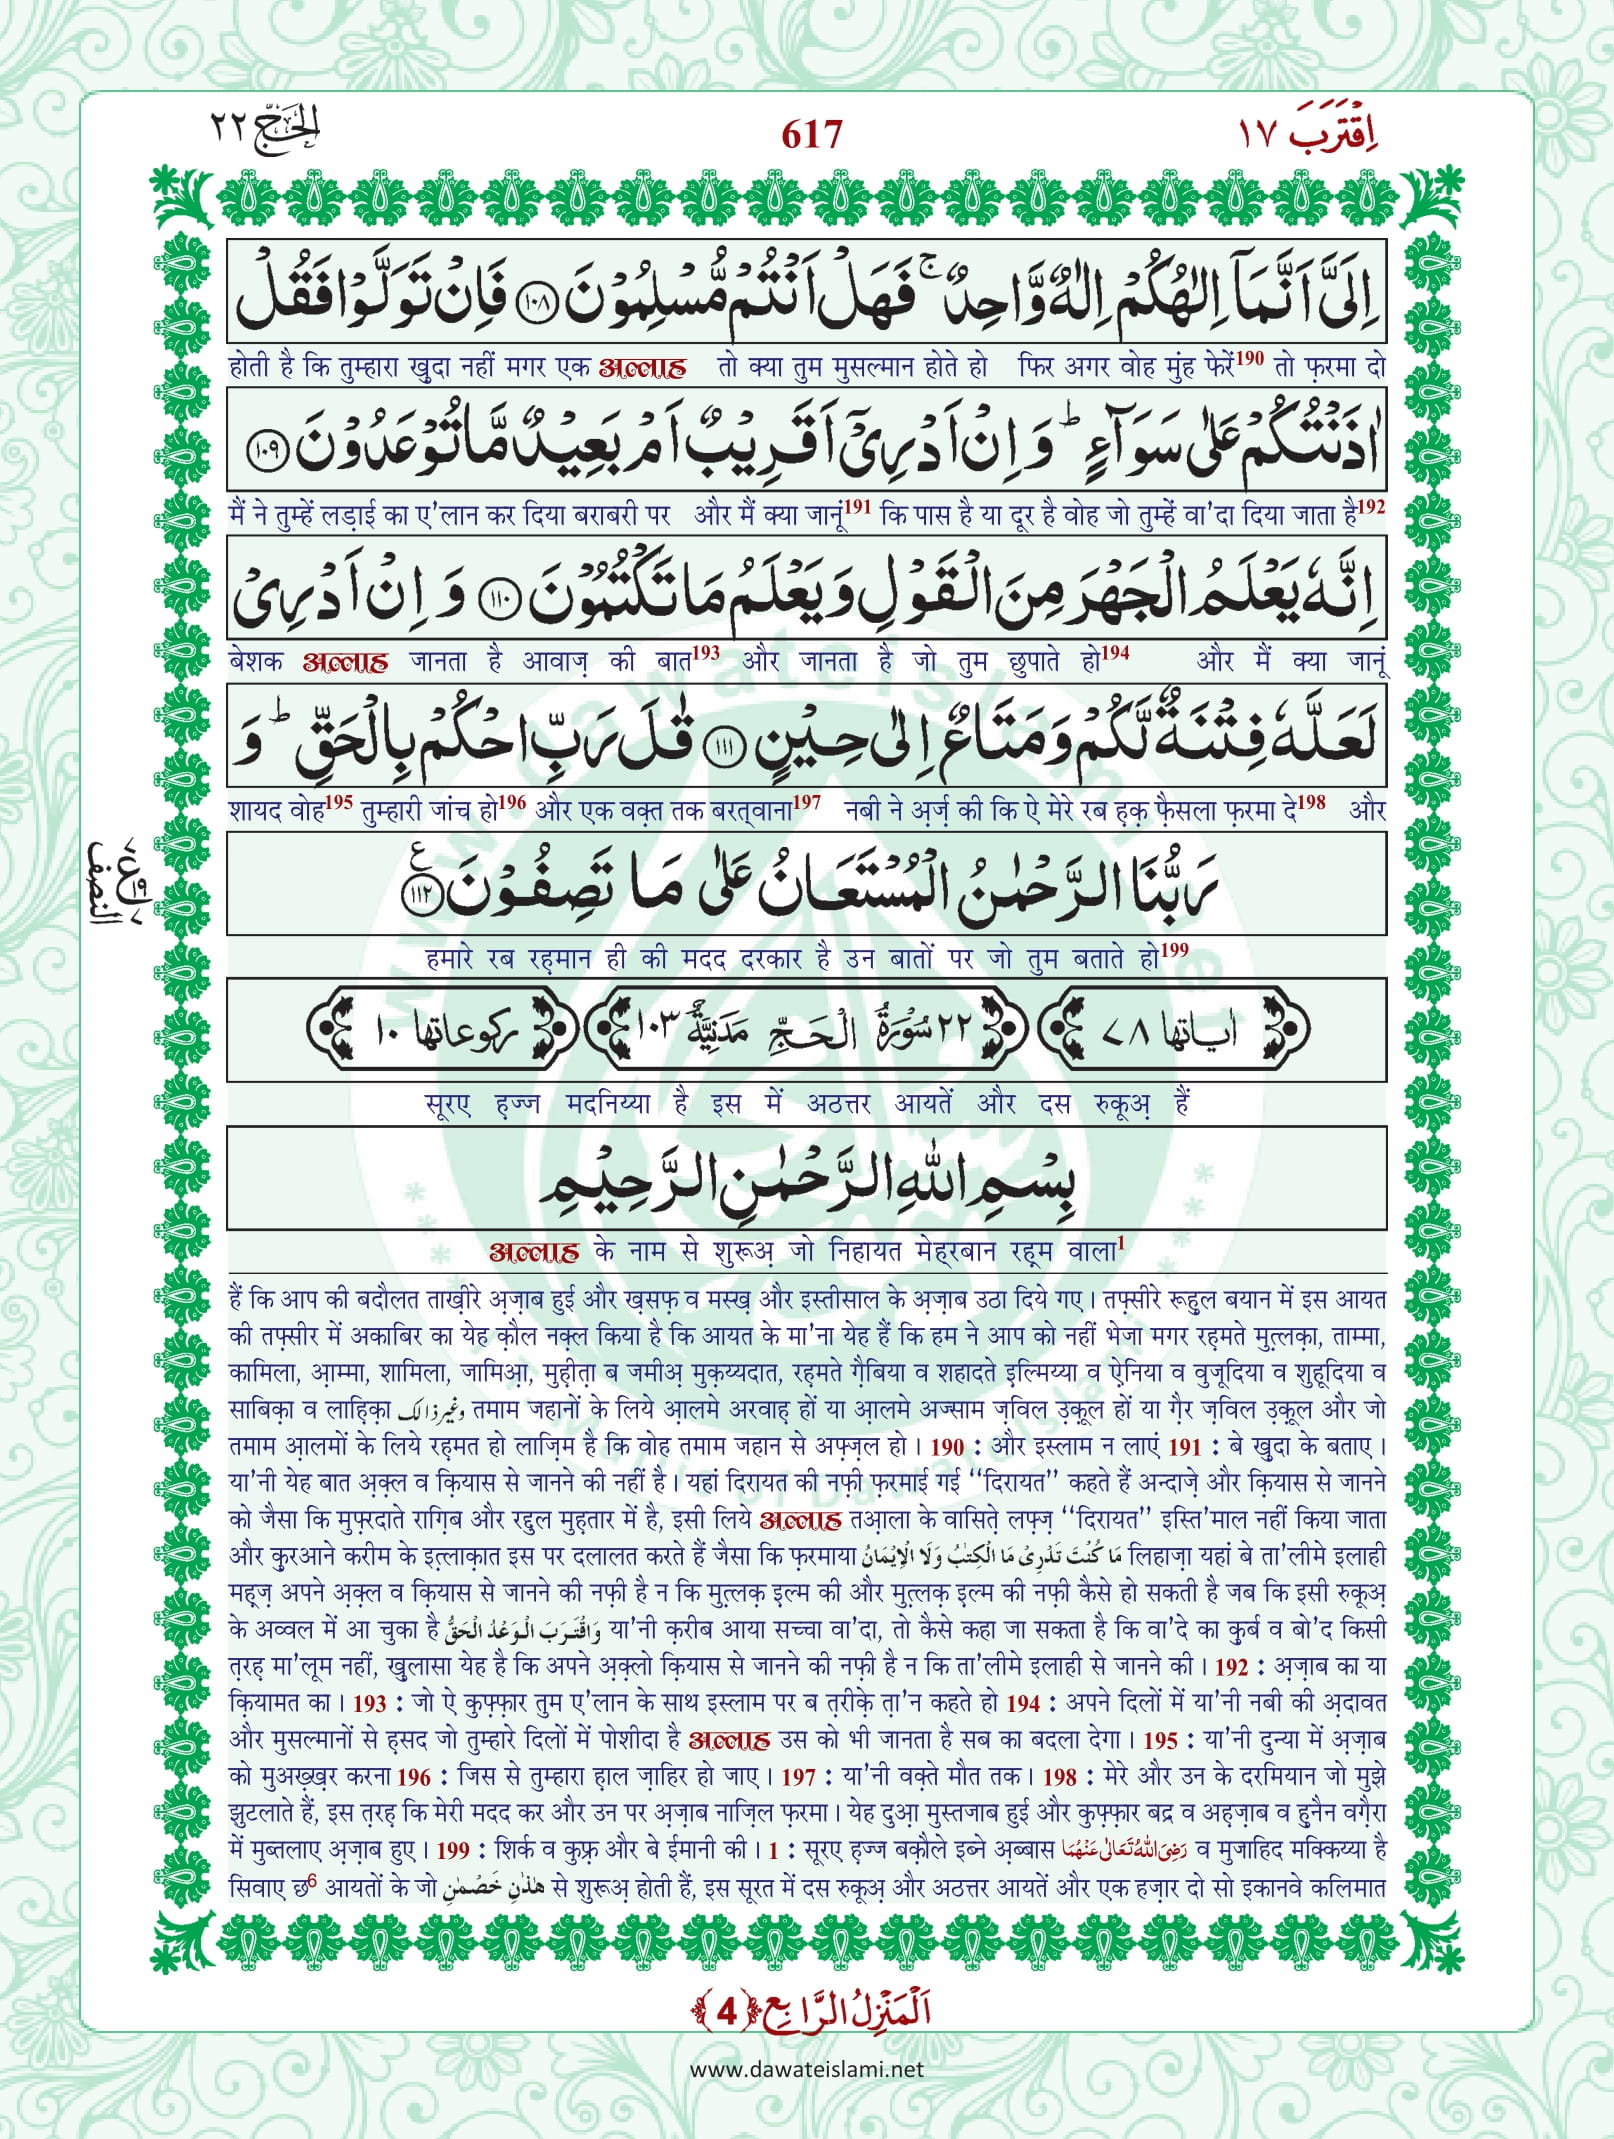 اِقْتَرَبَ ١٧
617
الحَجّ ٢٢
اِلَیَّ اَنَّمَاۤ اِلٰهُكُمْ اِلٰهٌ وَّاحِدٌۚ فَهَلْ اَنْتُمْ مُّسْلِمُوْنَ ﴿۱۰۸﴾ فَاِنْ تَوَلَّوْا فَقُلْ
होती है कि तुम्हारा ख़ुदा नहीं मगर एक अल्लाह तो क्या तुम मुसल्मान होते हो फिर अगर वोह मुंह फेरें190 तो फ़रमा दो
اٰذَنْتُكُمْ عَلٰى سَوَآءٍؕ وَ اِنْ اَدْرِیْۤ اَقَرِیْبٌ اَمْ بَعِیْدٌ مَّا تُوْعَدُوْنَ ﴿۱۰۹﴾
मैं ने तुम्हें लड़ाई का ए'लान कर दिया बराबरी पर और मैं क्या जानूं191 कि पास है या दूर है वोह जो तुम्हें वा'दा दिया जाता है192
اِنَّهٗ یَعْلَمُ الْجَهْرَ مِنَ الْقَوْلِ وَ یَعْلَمُ مَا تَكْتُمُوْنَ ﴿۱۱۰﴾ وَ اِنْ اَدْرِیْ
बेशक अल्लाह जानता है आवाज़ की बात193 और जानता है जो तुम छुपाते हो194 और मैं क्या जानूं
لَعَلَّهٗ فِتْنَةٌ لَّكُمْ وَ مَتَاعٌ اِلٰى حِیْنٍ ﴿۱۱۱﴾ قٰلَ رَبِّ احْكُمْ بِالْحَقِّؕ وَ
शायद वोह195 तुम्हारी जांच हो196 और एक वक़्त तक बरत्वाना197 नबी ने अ़र्ज़ की कि ऐ मेरे रब ह़क़ फ़ैसला फ़रमा दे198 और
رَبُّنَا الرَّحْمٰنُ الْمُسْتَعَانُ عَلٰى مَا تَصِفُوْنَ ﴿۱۱۲﴾ ع
النصف
हमारे रब रह़मान ही की मदद दरकार है उन बातों पर जो तुम बताते हो199
اٰیاتها ٧٨ ٢٢ سُوْرَةُ الْحَجِّ مَدَنِیَّةٌ ١٠٣ رکوعاتها ١٠
सूरए ह़ज्ज मदनिय्या है इस में अठत्तर आयतें और दस रुकूअ़ हैं
بِسْمِ اللّٰهِ الرَّحْمٰنِ الرَّحِیْمِ
अल्लाह के नाम से शुरूअ़ जो निहायत मेह्रबान रह़्म वाला1
हैं कि आप की बदौलत ताख़ीरे अ़ज़ाब हुई और ख़सफ़ व मस्ख़ और इस्तीसाल के अ़ज़ाब उठा दिये गए। तफ़्सीरे रूहुल बयान में इस आयत
की तफ़्सीर में अकाबिर का येह क़ौल नक़्ल किया है कि आयत के मा'ना येह हैं कि हम ने आप को नहीं भेजा मगर रह़मते मुत़्लक़ा, ताम्मा,
कामिला, आ़म्मा, शामिला, जामिआ़, मुह़ीत़ा ब जमीअ़ मुक़य्यदात, रह़मते ग़ैबिया व शहादते इ़ल्मिय्या व ऐ़निया व वुजूदिया व शुहूदिया व
साबिक़ा व लाह़िक़ा وغیر ذالک तमाम जहानों के लिये आ़लमे अरवाह़ हों या आ़लमे अज्साम ज़विल उ़क़ूल हों या ग़ैर ज़विल उ़क़ूल और जो
तमाम आ़लमों के लिये रह़मत हो लाज़िम है कि वोह तमाम जहान से अफ़्ज़ल हो। 190 : और इस्लाम न लाएं 191 : बे ख़ुदा के बताए।
या'नी येह बात अ़क़्ल व क़ियास से जानने की नहीं है। यहां दिरायत की नफ़ी फ़रमाई गई ''दिरायत'' कहते हैं अन्दाज़े और क़ियास से जानने
को जैसा कि मुफ़रदाते राग़िब और रद्दुल मुह़तार में है, इसी लिये अल्लाह तआ़ला के वासित़े लफ़्ज़ ''दिरायत'' इस्ति'माल नहीं किया जाता
और क़ुरआने करीम के इत़्लाक़ात इस पर दलालत करते हैं जैसा कि फ़रमाया مَا كُنْتَ تَدْرِیْ مَا الْكِتٰبُ وَلَا الْاِیْمَانُ लिहाज़ा यहां बे ता'लीमे इलाही
मह़ज़ अपने अ़क़्ल व क़ियास से जानने की नफ़ी है न कि मुत़्लक़ इ़ल्म की और मुत़्लक़ इ़ल्म की नफ़ी कैसे हो सकती है जब कि इसी रुकूअ़
के अव्वल में आ चुका है وَاقْتَرَبَ الْوَعْدُ الْحَقُّ या'नी क़रीब आया सच्चा वा'दा, तो कैसे कहा जा सकता है कि वा'दे का क़ुर्ब व बो'द किसी
त़रह़ मा'लूम नहीं, ख़ुलासा येह है कि अपने अ़क़्लो क़ियास से जानने की नफ़ी है न कि ता'लीमे इलाही से जानने की। 192 : अ़ज़ाब का या
क़ियामत का। 193 : जो ऐ कुफ़्फ़ार तुम ए'लान के साथ इस्लाम पर ब त़रीक़े त़ा'न कहते हो 194 : अपने दिलों में या'नी नबी की अ़दावत
और मुसल्मानों से ह़सद जो तुम्हारे दिलों में पोशीदा है अल्लाह उस को भी जानता है सब का बदला देगा। 195 : या'नी दुन्या में अ़ज़ाब
को मुअख़्ख़र करना 196 : जिस से तुम्हारा ह़ाल ज़ाहिर हो जाए। 197 : या'नी वक़्ते मौत तक। 198 : मेरे और उन के दरमियान जो मुझे
झुटलाते हैं, इस त़रह़ कि मेरी मदद कर और उन पर अ़ज़ाब नाज़िल फ़रमा। येह दुआ़ मुस्तजाब हुई और कुफ़्फ़ार बद्र व अह़ज़ाब व ह़ुनैन वग़ैरा
में मुब्तलाए अ़ज़ाब हुए। 199 : शिर्क व कुफ़्र और बे ईमानी की। 1 : सूरए ह़ज्ज बक़ौले इब्ने अ़ब्बास رَضِیَ اللّٰهُ تَعَالٰی عَنْهُمَا व मुजाहिद मक्किय्या है
सिवाए छ6 आयतों के जो هٰذٰنِ خَصْمٰنِ से शुरूअ़ होती हैं, इस सूरत में दस रुकूअ़ और अठत्तर आयतें और एक हज़ार दो सो इकानवे कलिमात
اَلْمَنْزِلُ الرَّابِع ﴿4﴾
www.dawateislami.net